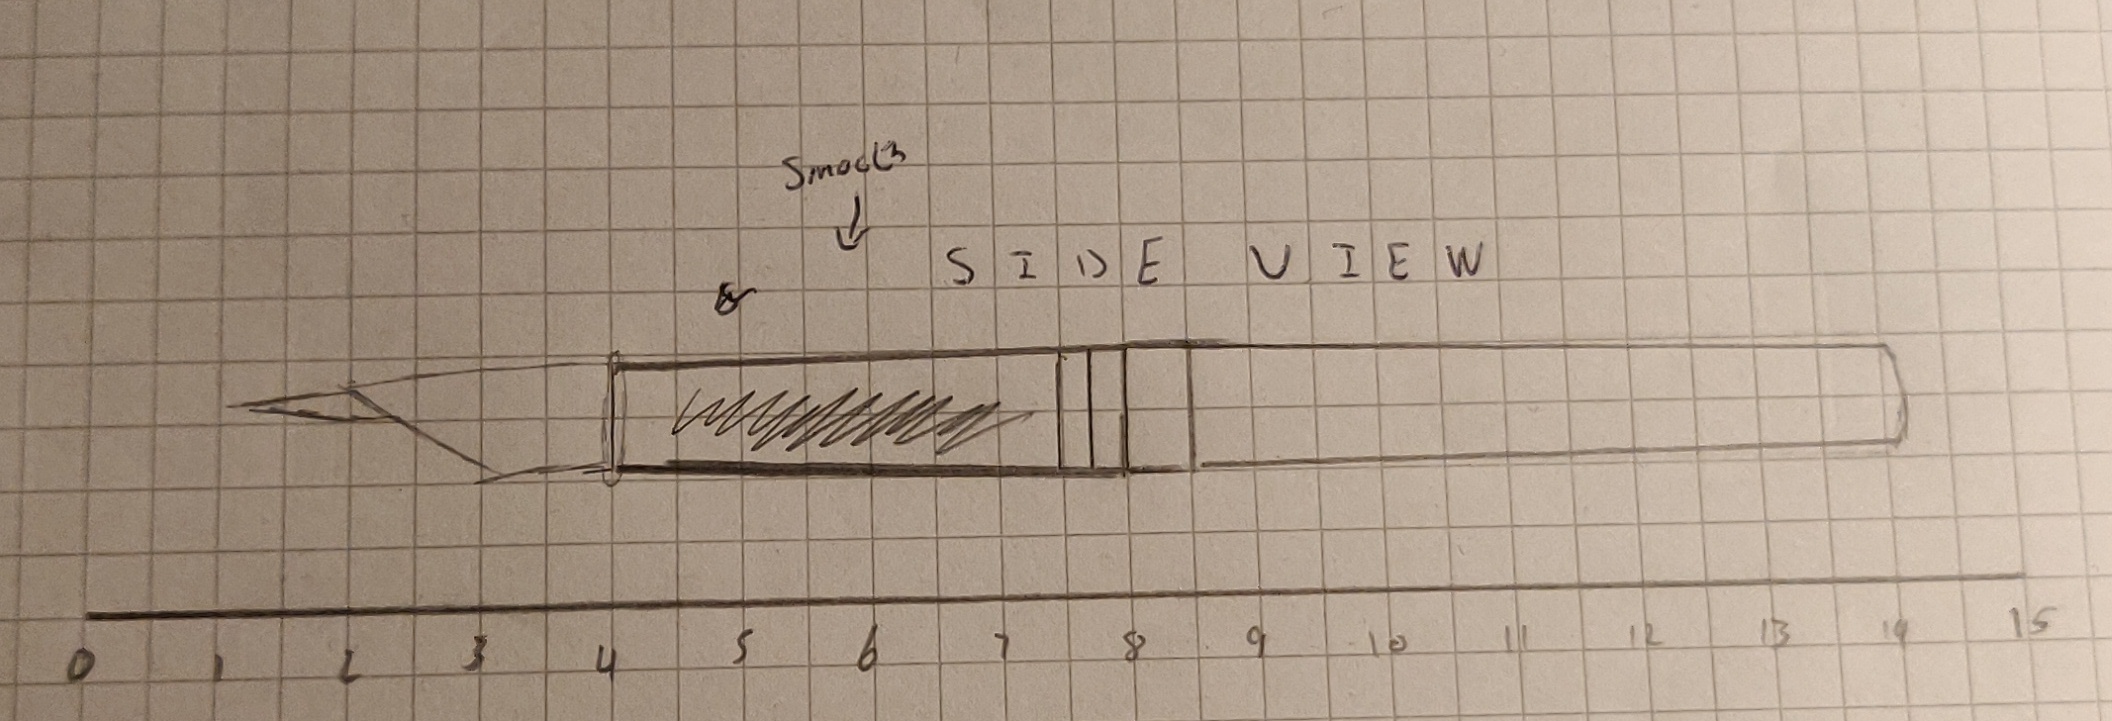 SIDE VIEW
0 1 2 3 4 5 6 7 8 9 10 11 12 13 14 15